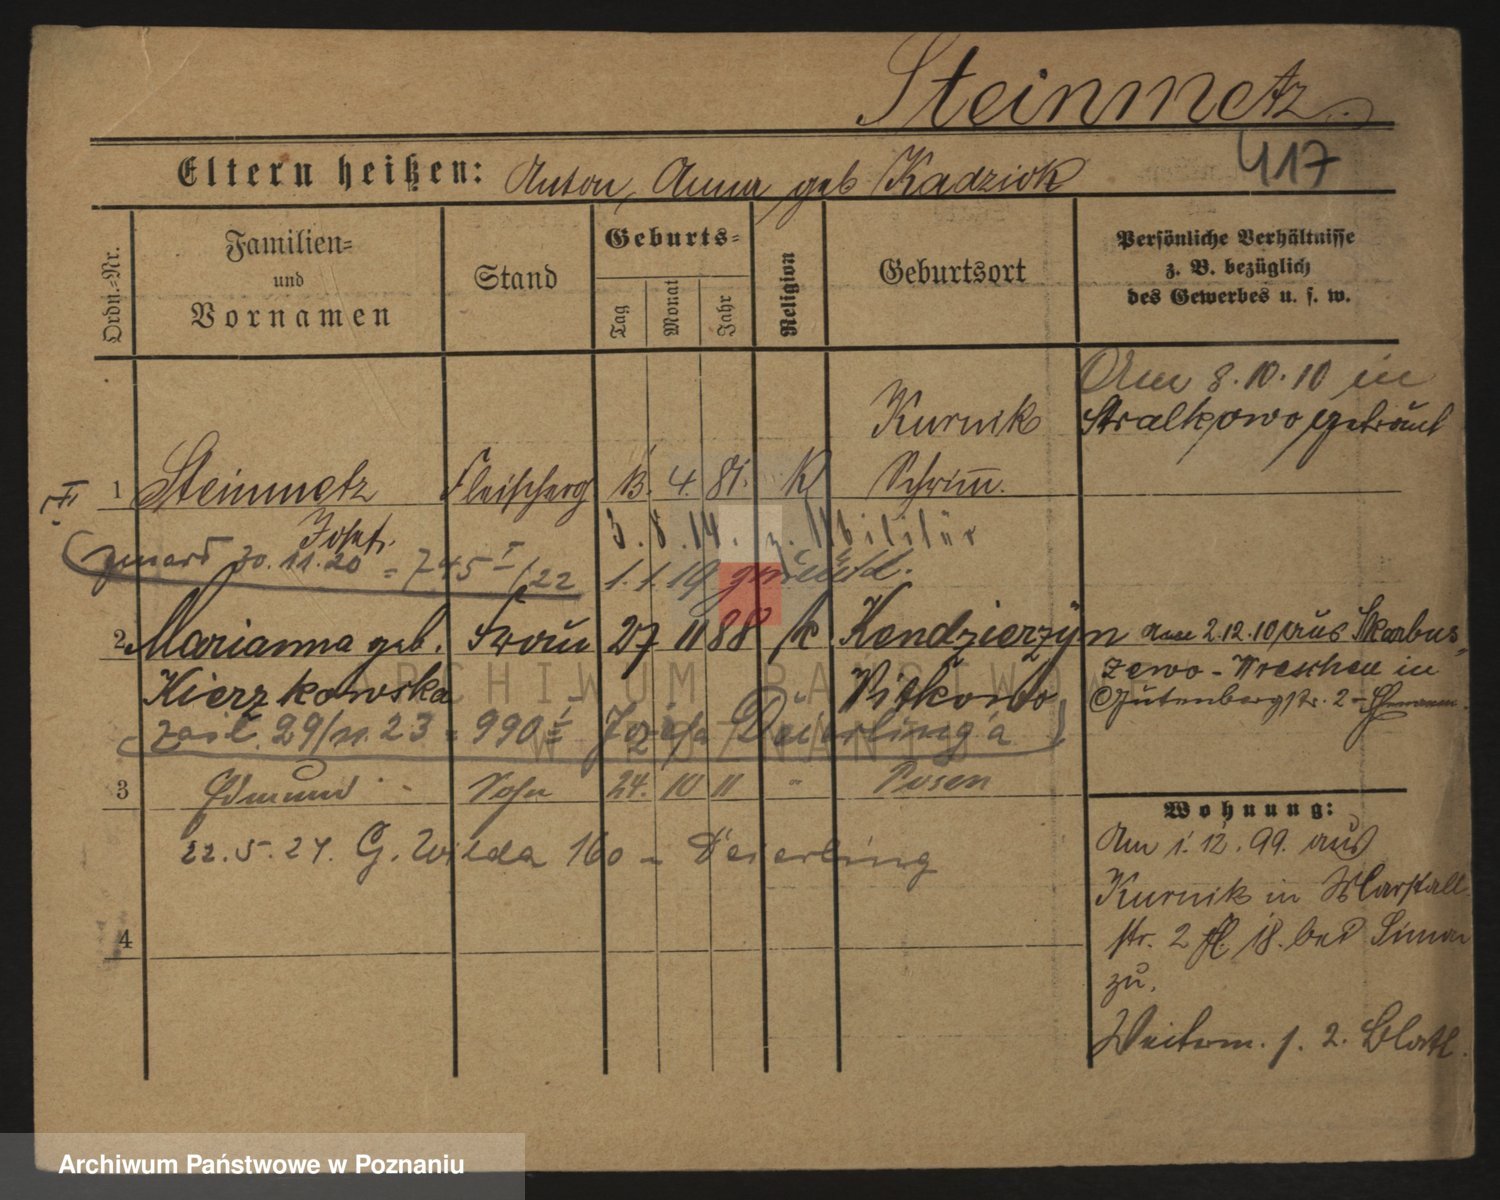 Steinmetz
417
Eltern heißen: Anton, Anna geb Kadziok
Ordn.-Nr.
Familien-
und
Vornamen
Stand
Geburts-
Tag
Monat
Jahr
Religion
Geburtsort
Persönliche Verhältnisse
z. B. bezüglich
des Gewerbes u. s. w.
Am 8.10.10 in
Stralkowo getraut
Kurnik
1 Steinmetz Fleischerg 13. 4. 81. Kl Schrimm.
Josef. 3.8.14. z. Militär
zmarł 30.11.20 = 745 I/22 1.1.19 zurück.
2 Marianna geb. Frau 27 11 88 k Kendzierzyn
Kierzkowska Witkowo
am 2.12.10 aus Skarbus-
zewo - Wreschen in
Gutenbergstr. 2 - Ehemann.
zaśl. 29/11.23 = 990 I Józefa Deierling'a
3 Edmund Sohn 24. 10 11 " Posen
22.5.24. G. Wilda 160 - Deierling
4
Wohnung:
Am 1.12.99. aus
Kurnik in Marstall-
str. 2 fl. 18. bei Simon
zu.
Weiterm. s. 2. Blatt.
ARCHIWUM PAŃSTWOWE
W POZNANIU
Archiwum Państwowe w Poznaniu